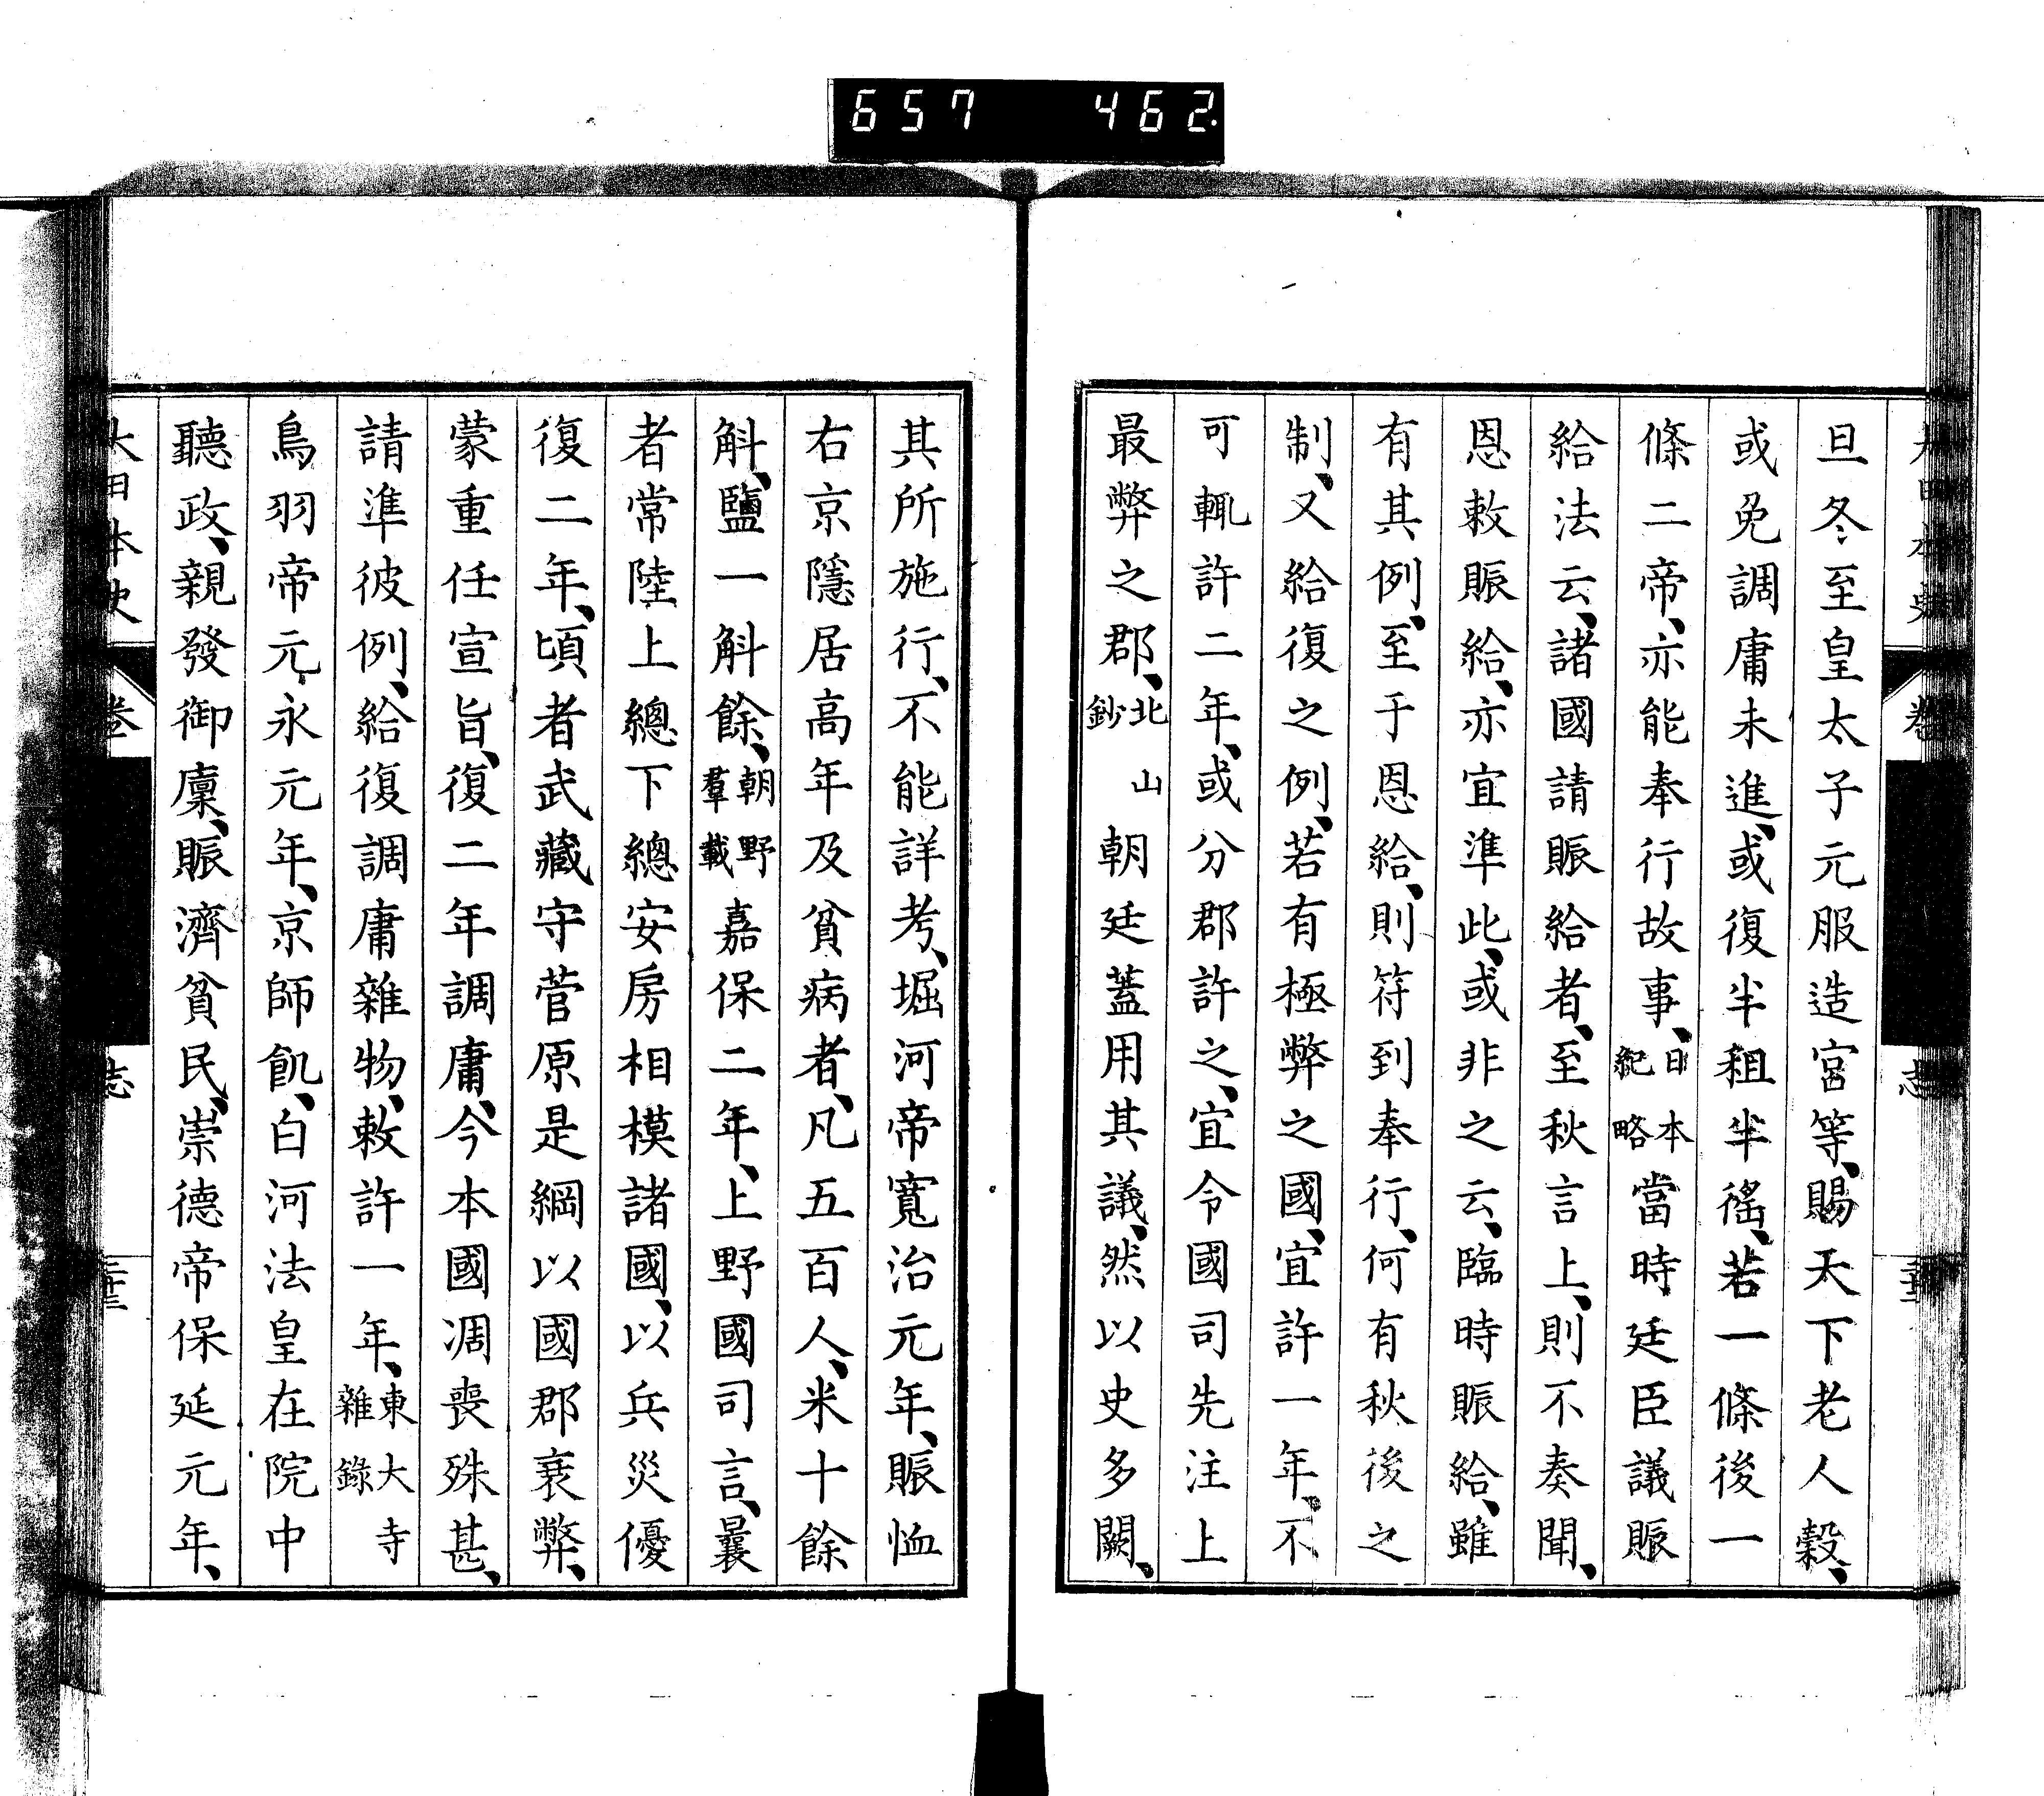 657 462
旦冬至皇太子元服造宮等、賜天下老人穀、
或免調庸未進、或復半租半徭、若一條後一
條二帝、亦能奉行故事、日本紀略當時廷臣議賑
給法云、諸國請賑給者、至秋言上、則不奏聞、
恩敕賑給、亦宜準此、或非之云、臨時賑給、雖
有其例、至于恩給、則符到奉行、何有秋後之
制、又給復之例、若有極弊之國、宜許一年、不
可輒許二年、或分郡許之、宜令國司先注上
最弊之郡、北山鈔朝廷蓋用其議、然以史多闕、
其所施行、不能詳考、堀河帝寬治元年、賑恤
右京隱居高年及貧病者、凡五百人、米十餘
斛、鹽一斛餘、朝野羣載嘉保二年、上野國司言、曩
者常陸上總下總安房相模諸國、以兵災優
復二年、頃者武藏守菅原是綱以國郡衰弊、
蒙重任宣旨、復二年調庸、今本國凋喪殊甚、
請準彼例、給復調庸雜物、敕許一年、東大寺雜錄
鳥羽帝元永元年、京師飢、白河法皇在院中
聽政、親發御廩、賑濟貧民、崇德帝保延元年、
大日本史 卷 志